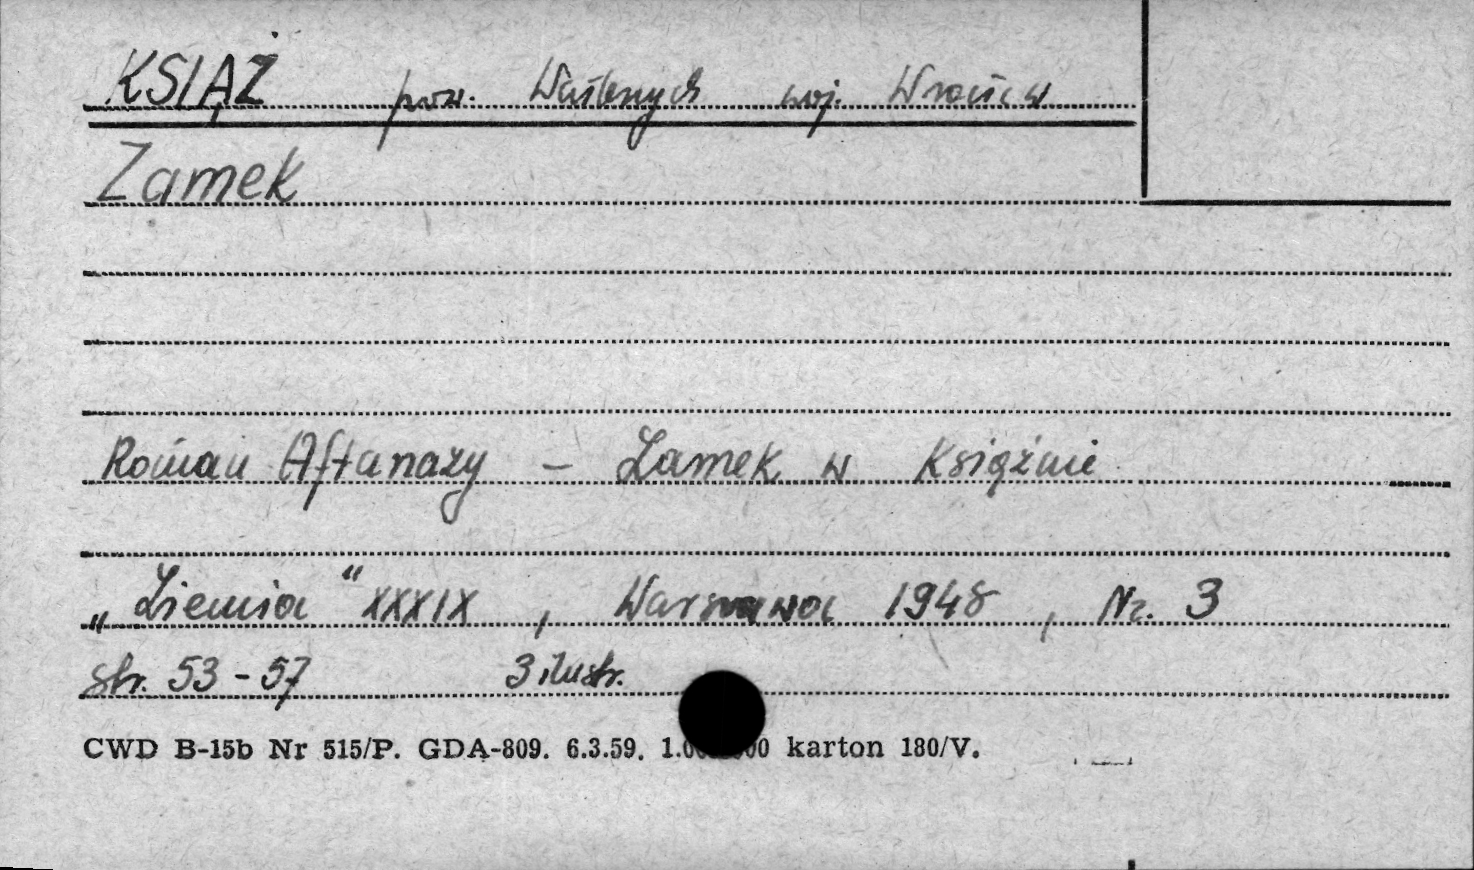 KSIĄŻ pow. Wałbrzych woj. Wrocław
Zamek
Roman Aftanazy – Zamek w Książnie
„Ziemia" XXXIX, Warszawa 1948, Nr. 3
str. 53-57 3 ilustr.
CWD B-15b Nr 515/P. GDA-809. 6.3.59. karton 180/V.